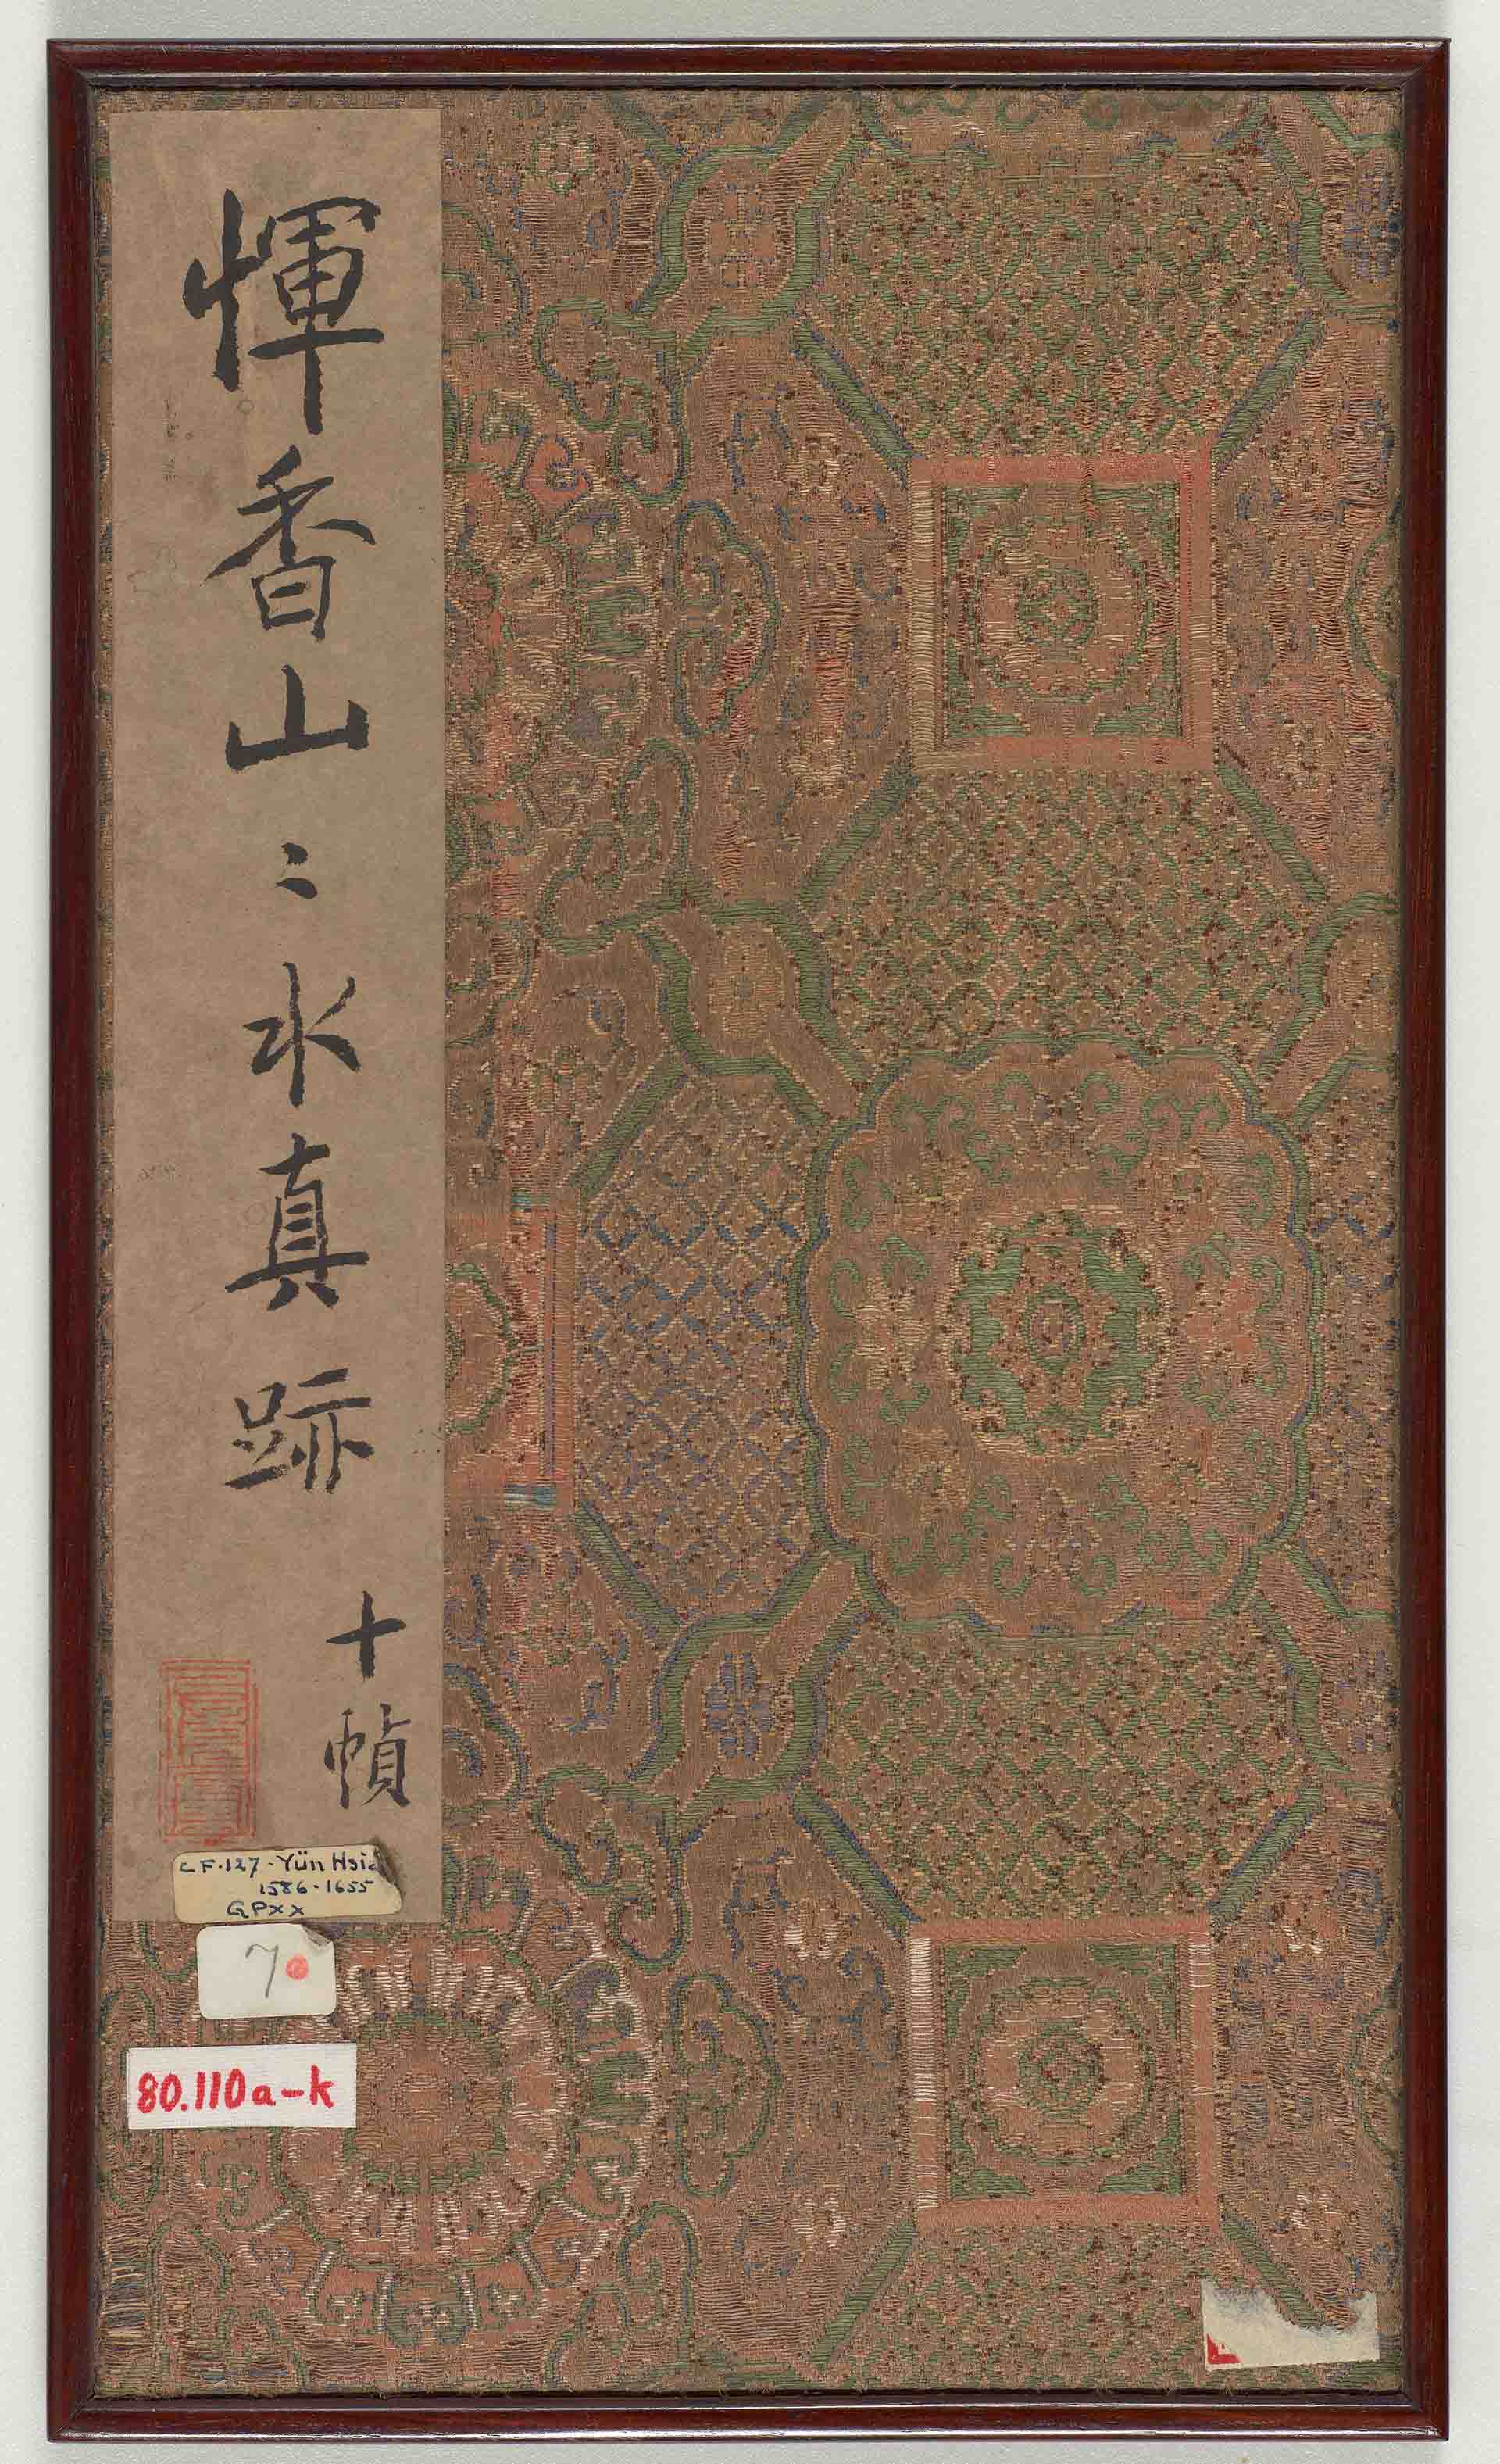 惲香山〻水真跡
十幀
CF.127-Yün Hsia
1586-1655
GPXX
7
80.110a-k